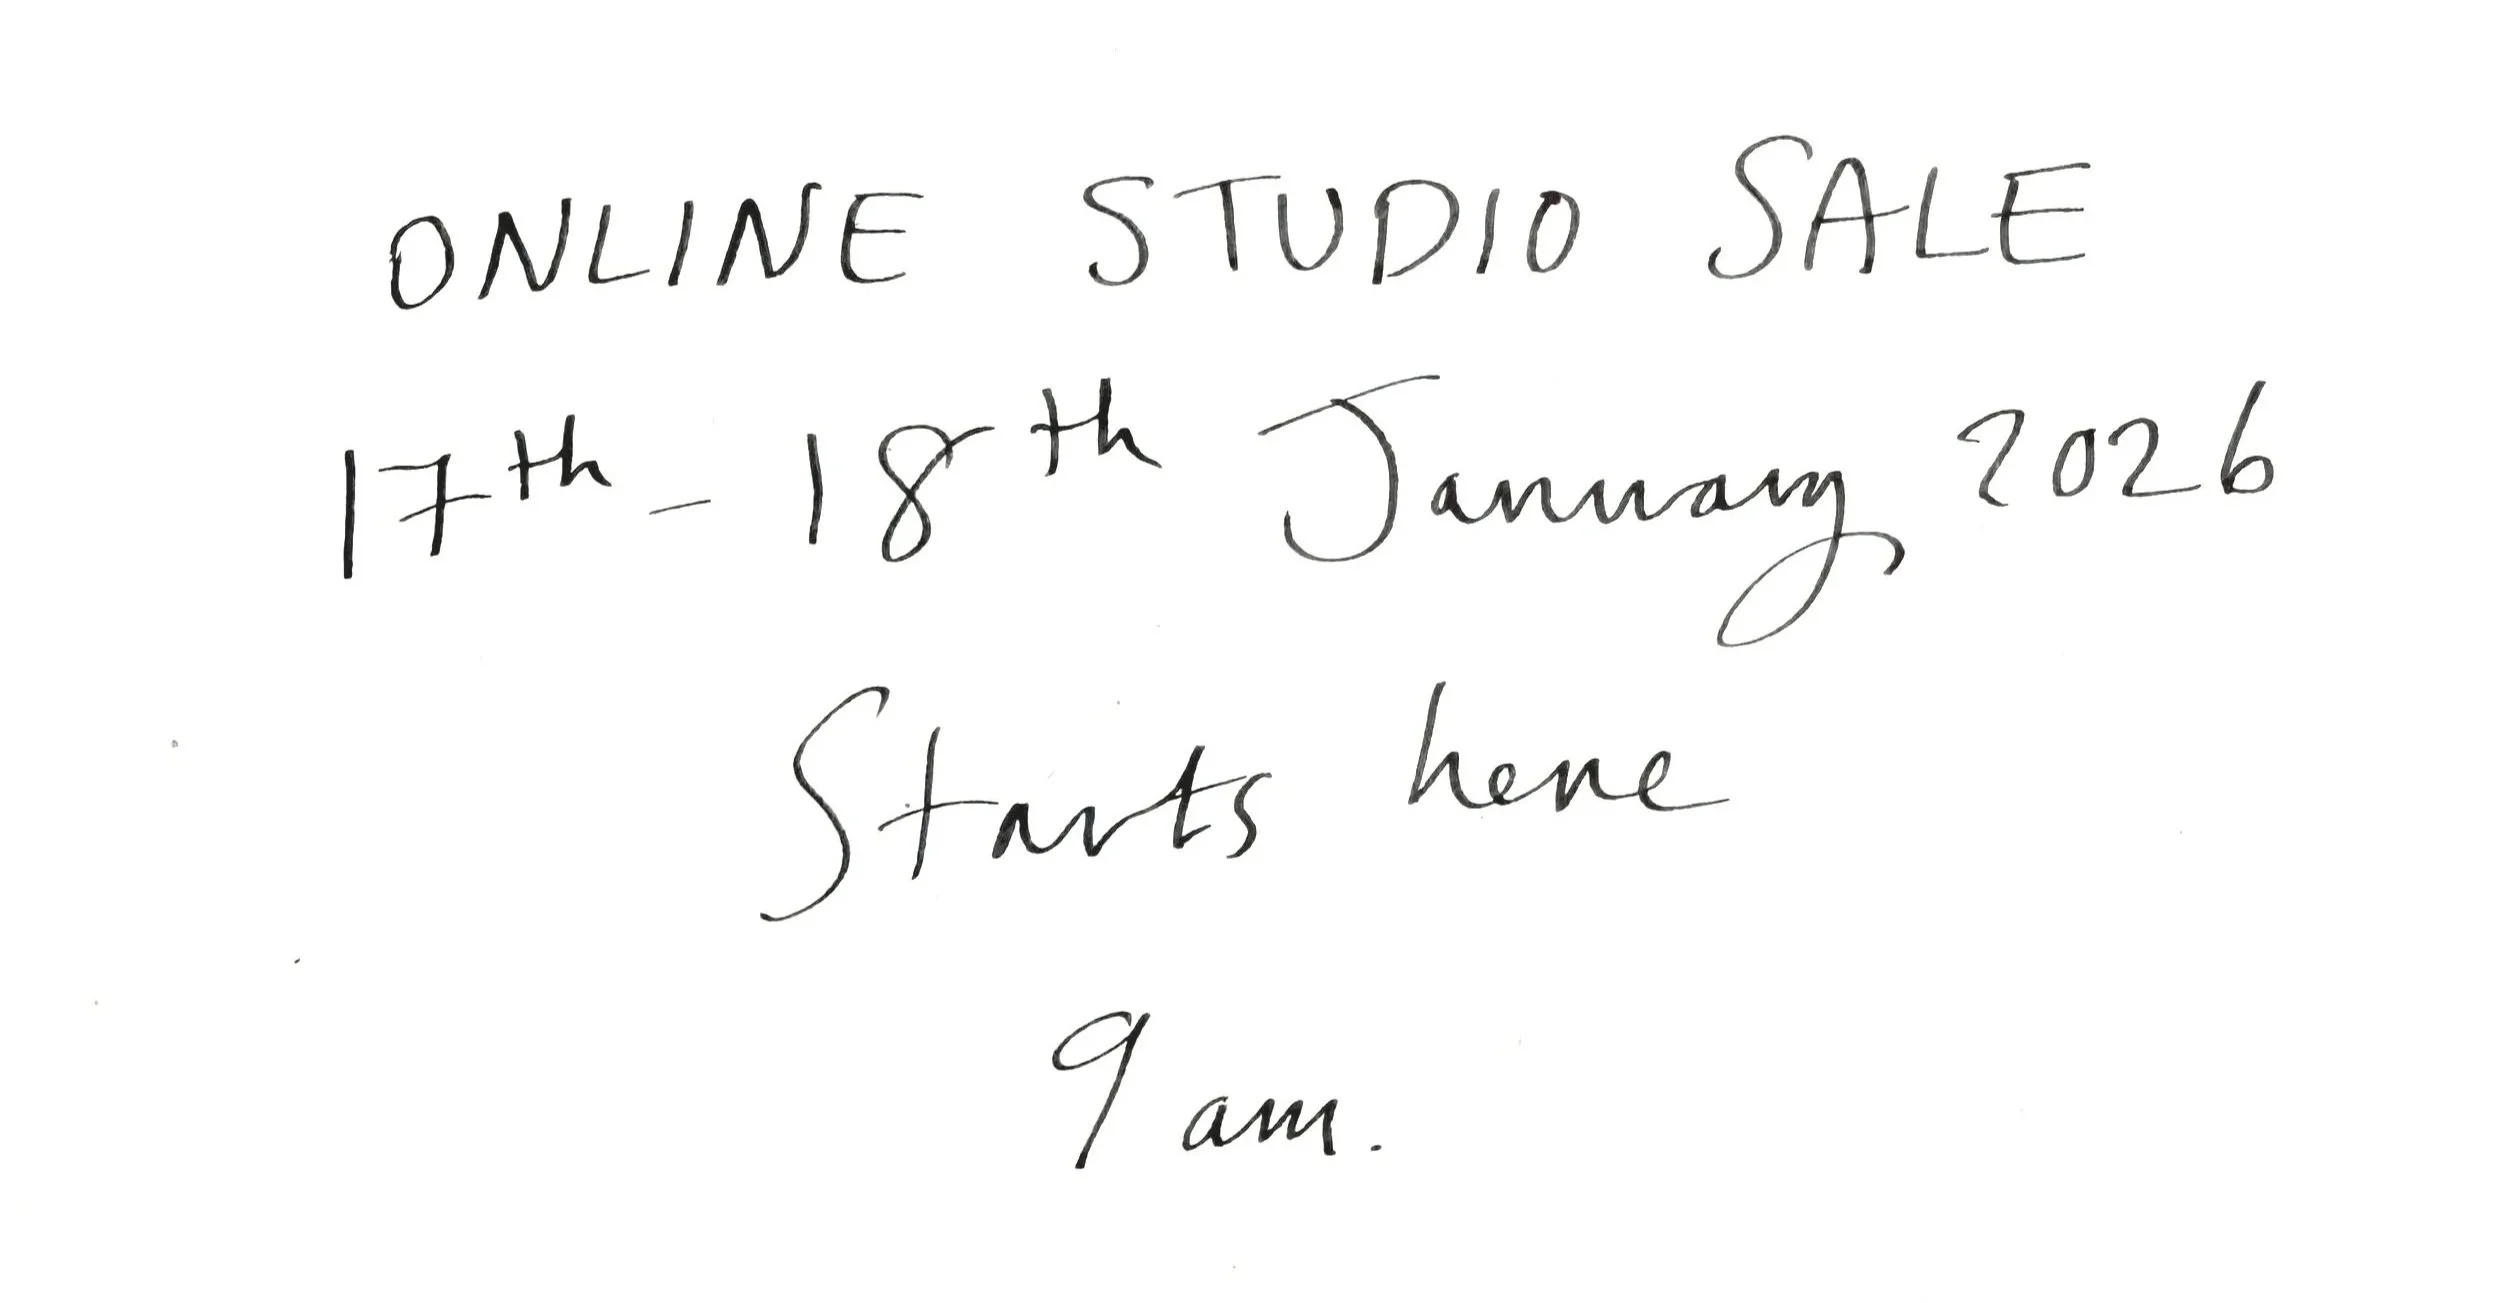 ONLINE STUDIO SALE
17th - 18th January 2026
Starts here
9 am.